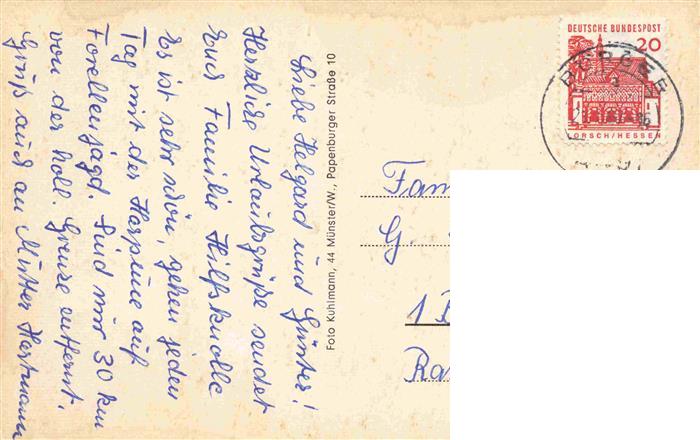 Liebe Helgard und Günter!
Herzliche Urlaubsgrüße sendet
Euch Familie Hilfsknolle
Es ist sehr schön, gehen jeden
Tag mit der Harpune auf
Forellenjagd. Sind nur 30 km
von der holl. Grenze entfernt.
Gruß auch an Mutter Hartmann
Foto Kuhlmann, 44 Münster/W., Papenburger Straße 10
DEUTSCHE BUNDESPOST
20
LORSCH/HESSEN
Fam
G.
1
Ra